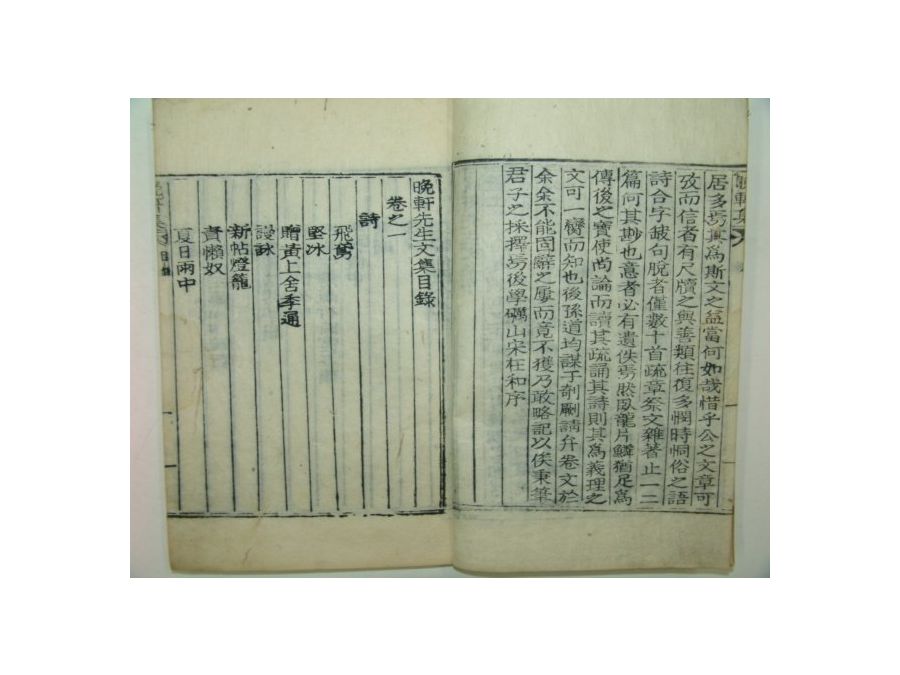 居多焉其爲斯文之益當何如哉惜乎公之文章可
攷而信者有尺牘之與善類往復多憫時恫俗之語
詩合字缺句脫者僅數十首疏章祭文雜著止一二
篇何其尠也意者必有遺佚焉然臥龍片鱗猶足爲
傳後之寶使尚論而讀其疏誦其詩則其爲義理之
文可一臠而知也後孫道均謀于剞劂請弁卷文於
余余不能固辭之屢而竟不獲乃敢略記以俟秉筆
君子之採擇焉後學礪山宋在和序
晚軒先生文集目錄
卷之一
詩
飛鴌
堅冰
贈黃上舍季通
謾詠
新帖燈籠
責懶奴
夏日雨中